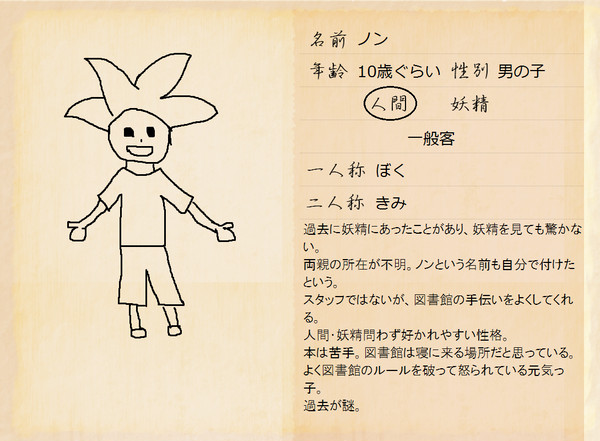 名前 ノン
年齢 10歳ぐらい 性別 男の子
人間 妖精
一般客
一人称 ぼく
二人称 きみ
過去に妖精にあったことがあり、妖精を見ても驚かな
い。
両親の所在が不明。ノンという名前も自分で付けた
という。
スタッフではないが、図書館の手伝いをよくしてくれ
る。
人間・妖精問わず好かれやすい性格。
本は苦手。図書館は寝に来る場所だと思っている。
よく図書館のルールを破って怒られている元気っ
子。
過去が謎。